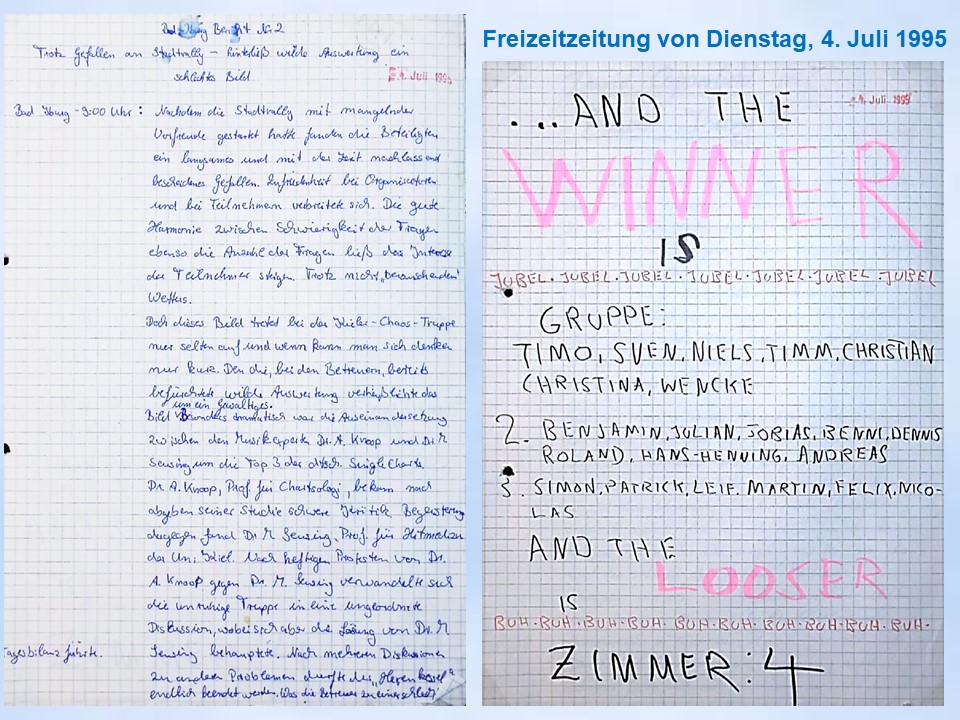 Bad Iburg Bericht Nr. 2
Trotz Gefallen an Stadtrally – hinterließ wilde Auswertung ein
schlechtes Bild.
4. Juli 1995
Bad Iburg - 9:00 Uhr: Nachdem die Stadtrally mit mangelnder
Vorfreude gestartet hatte fanden die Beteiligten
ein langsames und mit der Zeit nachlassend
bescheidenes Gefallen. Zufriedenheit bei Organisatoren
und bei Teilnehmern verbreitete sich. Die gute
Harmonie zwischen Schwierigkeit der Fragen
ebenso die Anzahl der Fragen ließ das Interesse
der Teilnehmer steigen. Trotz nicht "berauschenden"
Wetters.
Doch dieses Bild tretet bei der Kieler-Chaos-Truppe
nur selten auf und wenn kann man sich denken
nur kurz. Den die, bei den Betreuern, bereits
befürchtete wilde Auswertung verhäßlichte das
um ein gewaltiges.
Bild Besonders dramatisch war die Auseinandersetzung
zwischen den Musikexperten Dr. A. Knoop und Dr. M.
Sensing um die Top 3 der dtsch. Single Charts.
Dr. A. Knoop, Prof. für Chartsologi, bekam nach
abgeben seiner Studie schwere Kritik. Begeisterung
dagegen fand Dr. M. Sensing, Prof. für Hitmedizin
der Uni Kiel. Nach heftigen Protesten von Dr.
A. Knoop gegen Dr. M. Sensing verwandelte sich
die unruhige Truppe in eine ungeordnete
Diskussion, wobei sich aber die Lösung von Dr. M.
Sensing behauptete. Nach mehreren Diskussionen
zu anderen Problemen durfte der "Hexenkessel"
endlich beendet werden. Was die Betreuer zu einer schlecht
Tagesbilanz führte.
Freizeitzeitung von Dienstag, 4. Juli 1995
4. Juli 1995
...AND THE
WINNER
IS
JUBEL · JUBEL · JUBEL · JUBEL · JUBEL · JUBEL · JUBEL
GRUPPE:
TIMO, SVEN, NIELS, TIMM, CHRISTIAN
CHRISTINA, WENCKE
2. BENJAMIN, JULIAN, TOBIAS, BENNI, DENNIS
ROLAND, HANS-HENNING, ANDREAS
3. SIMON, PATRICK, LEIF, MARTIN, FELIX, NICO-
LAS
AND THE
LOOSER
IS
BUH · BUH · BUH · BUH · BUH · BUH · BUH · BUH · BUH · BUH ·
ZIMMER: 4